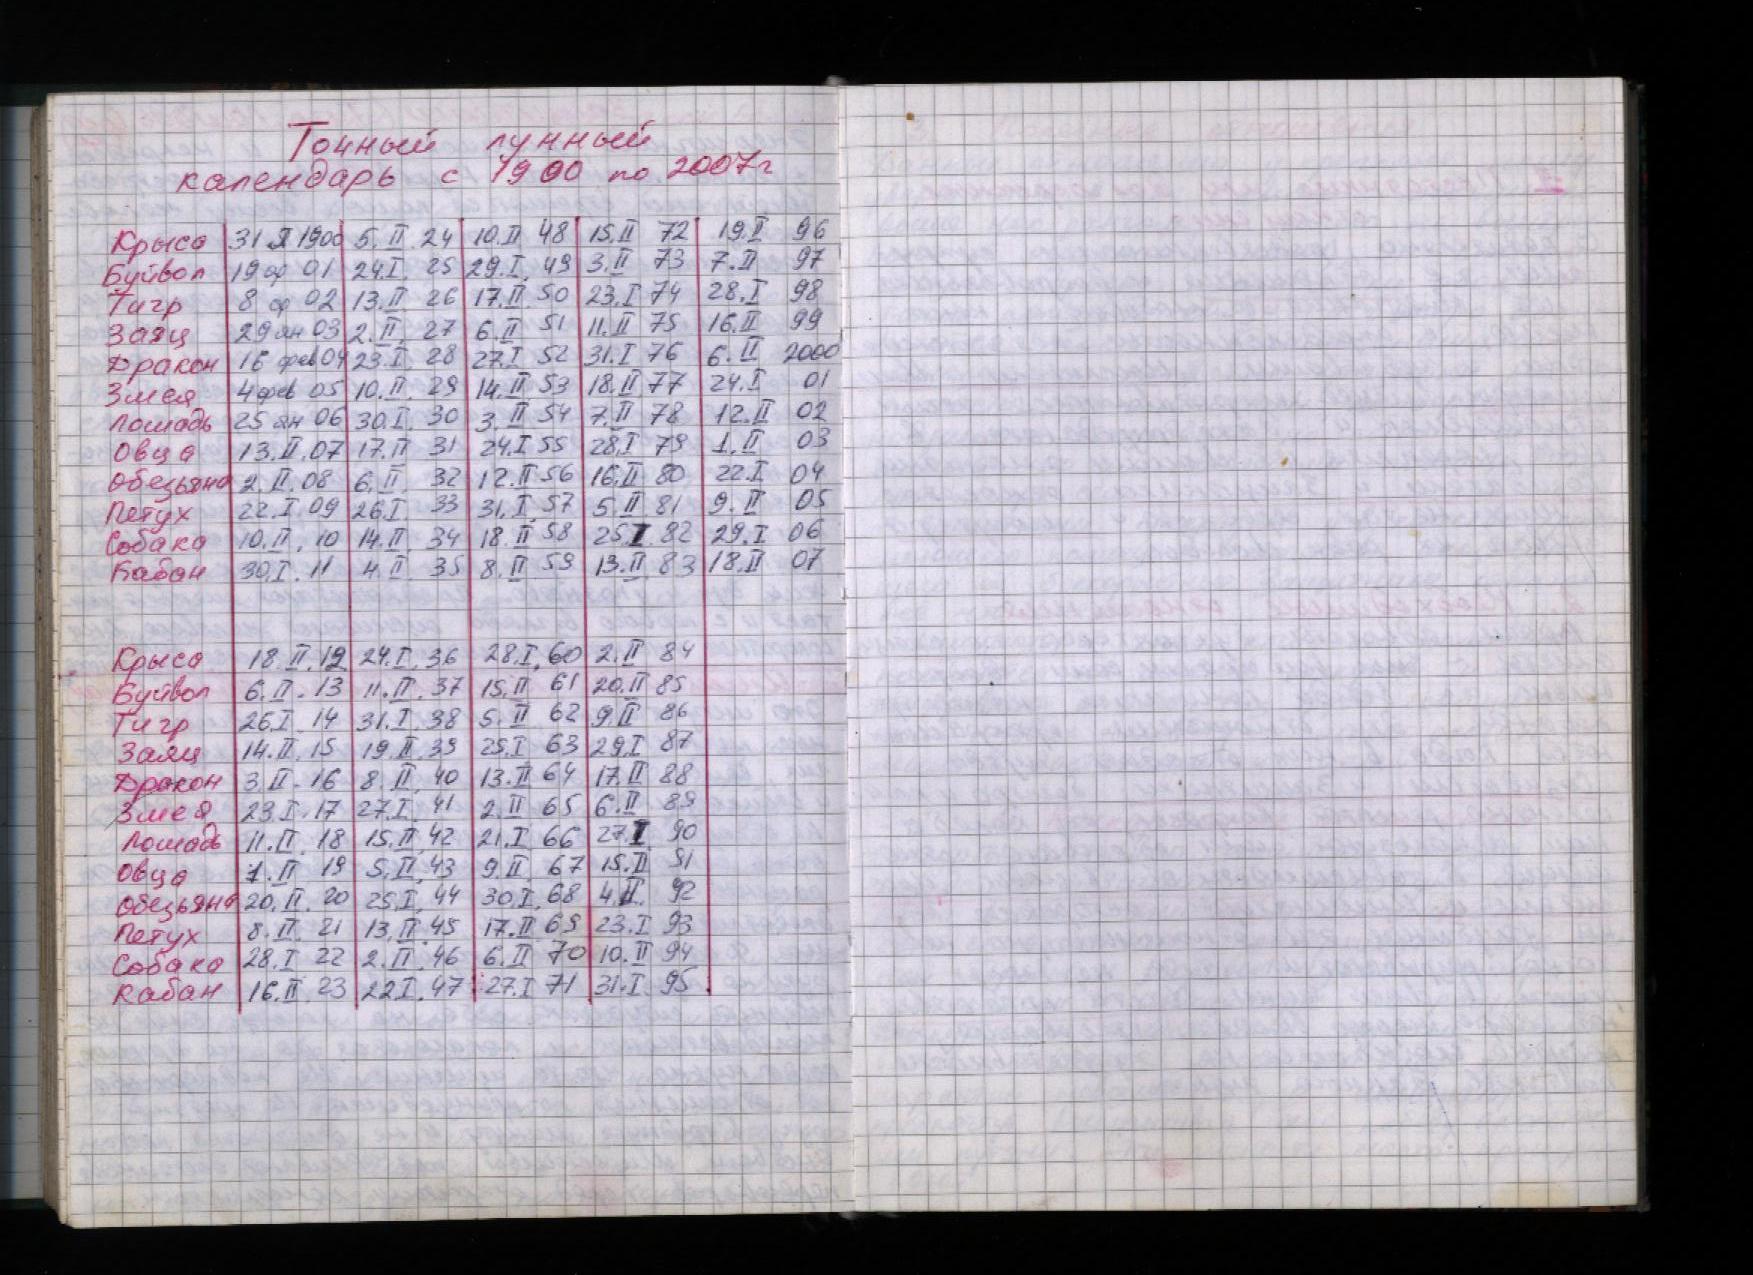 Точный лунный
календарь с 1900 по 2007г
Крыса 31 Я 1900 5. II 24 10. II 48 15. II 72 19. I 96
Буйвол 19 ф 01 24. I. 25 29. I. 49 3. II 73 7. II 97
Тигр 8 ф 02 13. II 26 17. II 50 23. I 74 28. I 98
Заяц 29 ян 03 2. II. 27 6. II 51 11. II 75 16. II 99
Дракон 16 фев 04 23. I. 28 27. I 52 31. I 76 6. II 2000
Змея 4 фев 05 10. II. 29 14. II 53 18. II 77 24. I 01
Лошадь 25 ян 06 30. I. 30 3. II 54 7. II 78 12. II 02
Овца 13. II. 07 17. II 31 24. I 55 28. I 79 1. II 03
Обезьяна 2. II. 08 6. II 32 12. II 56 16. II 80 22. I 04
Петух 22. I 09 26. I. 33 31. I. 57 5. II 81 9. II 05
Собака 10. II. 10 14. II. 34 18. II 58 25. I. 82 29. I 06
Кабан 30. I. 11 4. II 35 8. II 59 13. II. 83 18. II 07
Крыса 18. II. 12 24. I. 36 28. I. 60 2. II 84
Буйвол 6. II. 13 11. II. 37 15. II 61 20. II 85
Тигр 26. I. 14 31. I. 38 5. II 62 9. II 86
Заяц 14. II. 15 19. II. 39 25. I 63 29. I 87
Дракон 3. II. 16 8. II. 40 13. II 64 17. II 88
Змея 23. I. 17 27. I. 41 2. II 65 6. II 89
Лошадь 11. II. 18 15. II. 42 21. I 66 27. I 90
Овца 1. II 19 5. II. 43 9. II 67 15. II 91
Обезьяна 20. II. 20 25. I. 44 30. I. 68 4. II. 92
Петух 8. II. 21 13. II. 45 17. II 69 23. I 93
Собака 28. I 22 2. II. 46 6. II 70 10. II 94
Кабан 16. II. 23 22. I. 47 27. I 71 31. I. 95